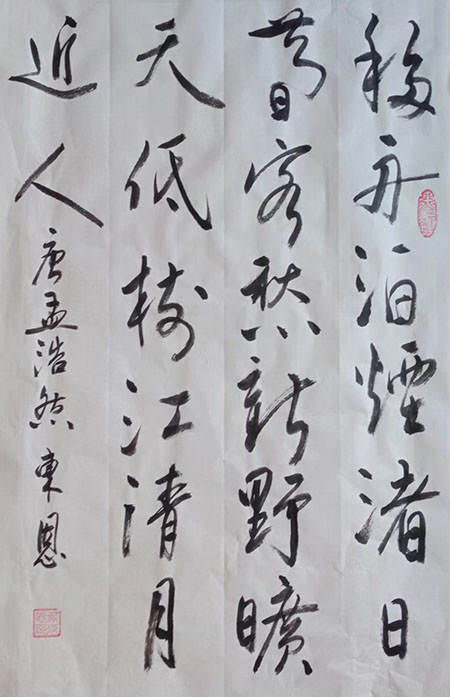 移舟泊煙渚日
暮客愁新野曠
天低樹江清月
近人
唐孟浩然 東恩